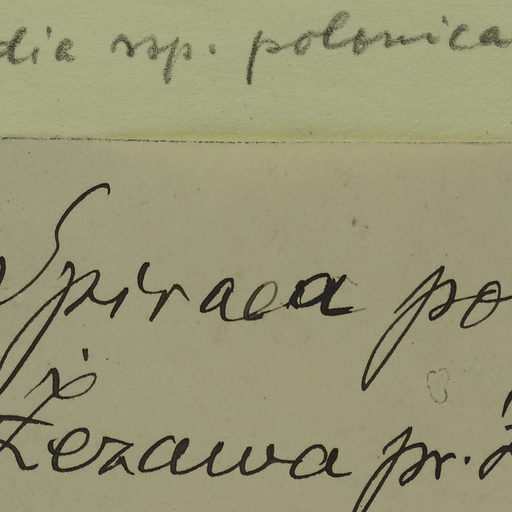 dia ssp. polonica
Spiraea po
Żezawa pr. Z